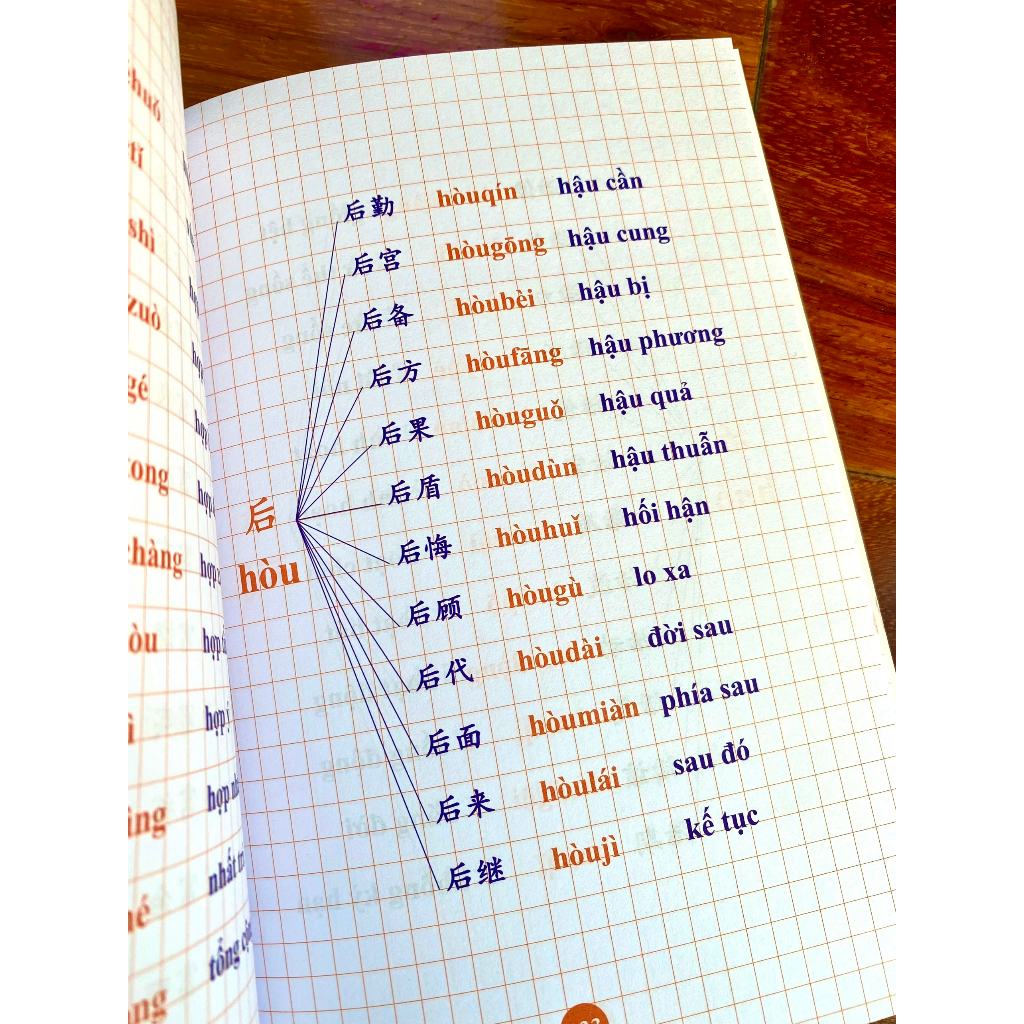 huó
tí
shì
zuò
gé
tong
chàng
hợp
hòu
hợp
hợp ý
hợp
nhất
tổng
后勤 hòuqín hậu cần
后宫 hòugōng hậu cung
后备 hòubèi hậu bị
后方 hòufāng hậu phương
后果 hòuguǒ hậu quả
后盾 hòudùn hậu thuẫn
后
hòu
后悔 hòuhuǐ hối hận
后顾 hòugù lo xa
后代 hòudài đời sau
后面 hòumiàn phía sau
后来 hòulái sau đó
后继 hòujì kế tục